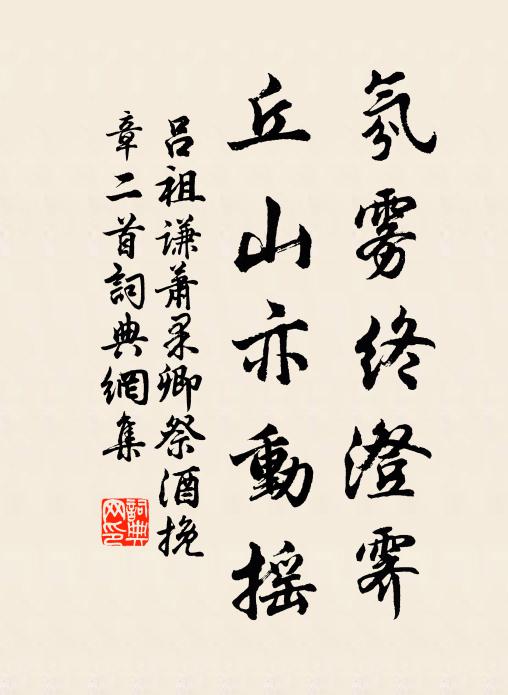 氛雾终澄霁
丘山亦動摇
吕祖谦萧果卿祭酒挽
章二首詞典網集
詞典
网印